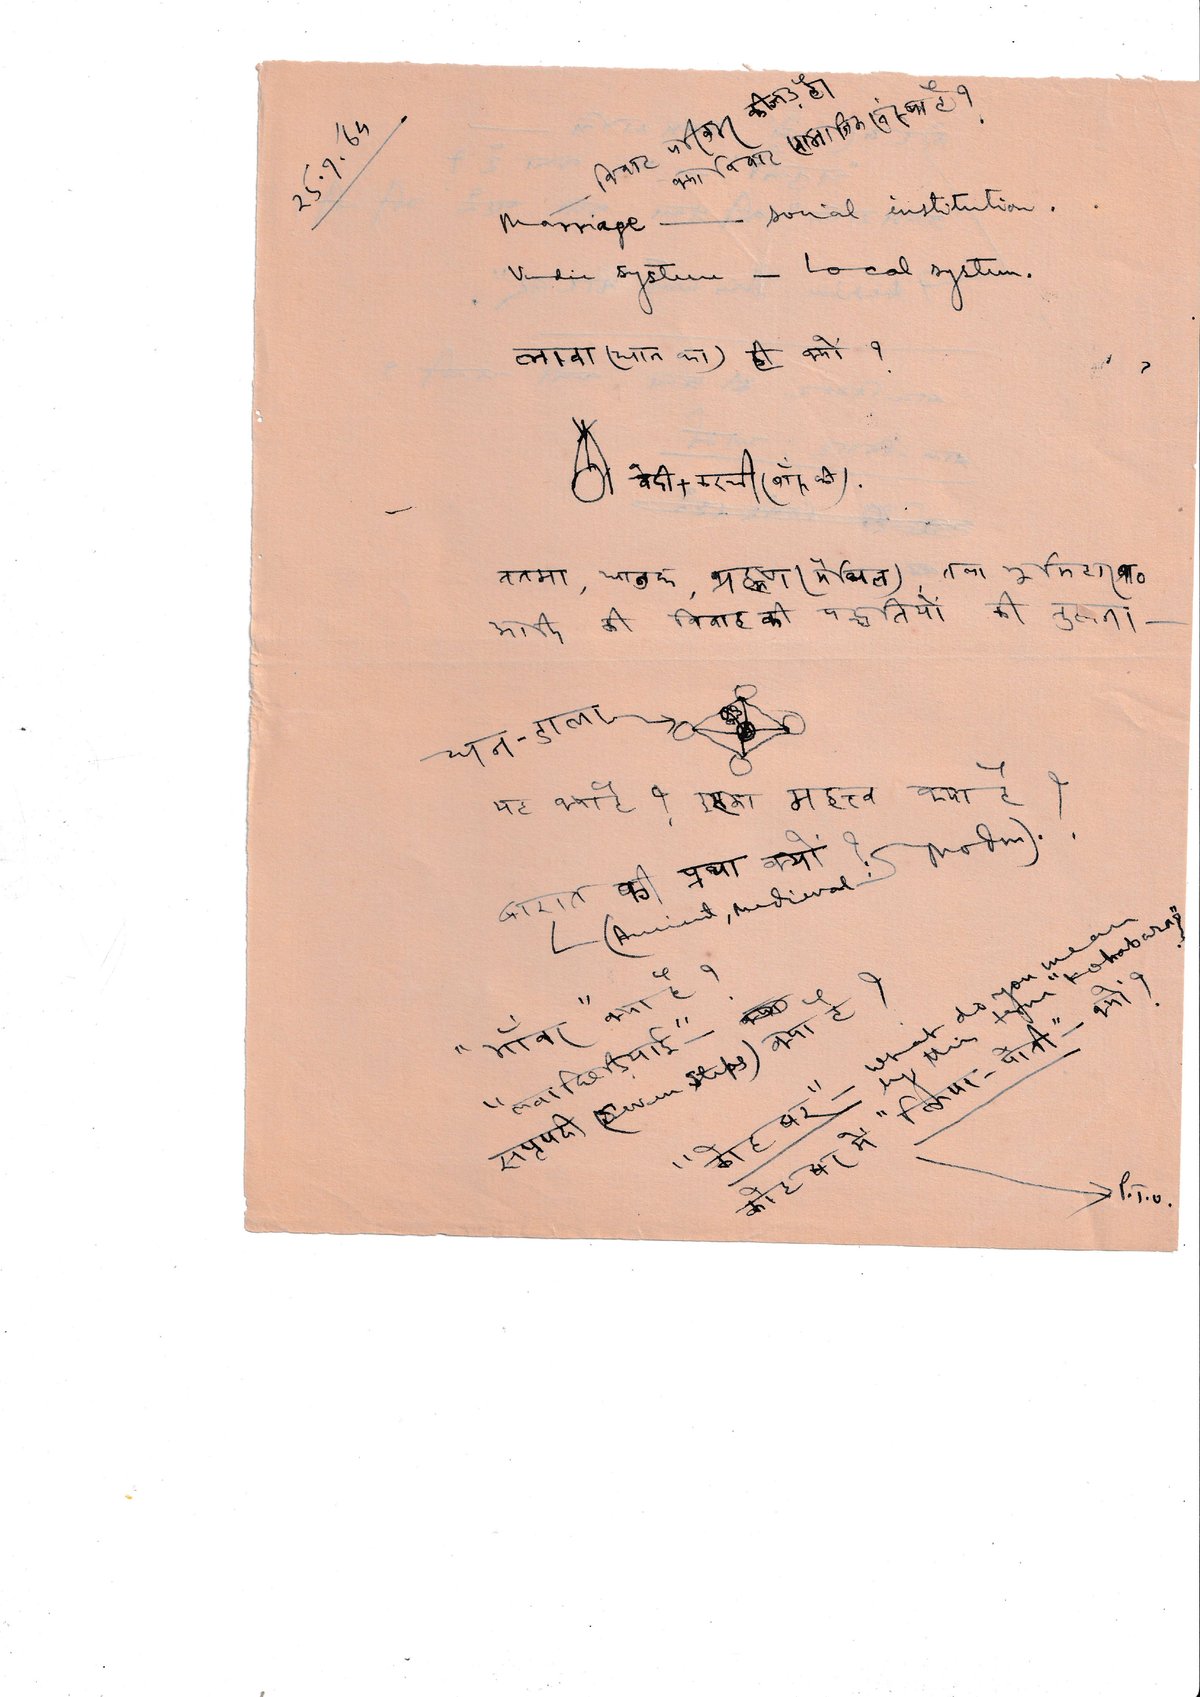 25.9.'64
विवाह परिवार की जड़ है।
क्या विवाह सामाजिक संस्था है ?
Marriage —— social institution.
Vedic system — Local system.
लावा (धान का) ही क्यों ?
वेदी + करची (बाँस की).
ततमा, धानुक, ब्राह्मण (मैथिल), तथा भूमिहार ब्रा०
आदि की विवाह की पद्धतियों की तुलना —
धन-डाला
यह क्या है ? इसका महत्त्व क्या है ?
बारात की प्रथा क्यों ?
(Ancient, medieval Modern).
"भाँवर" क्या है ?
सप्तपदी (seven steps) क्या है ?
"कोहबर" — what do you mean
by this term "Kohabara"?
कोहबर में - क्यों ?
P.T.O.